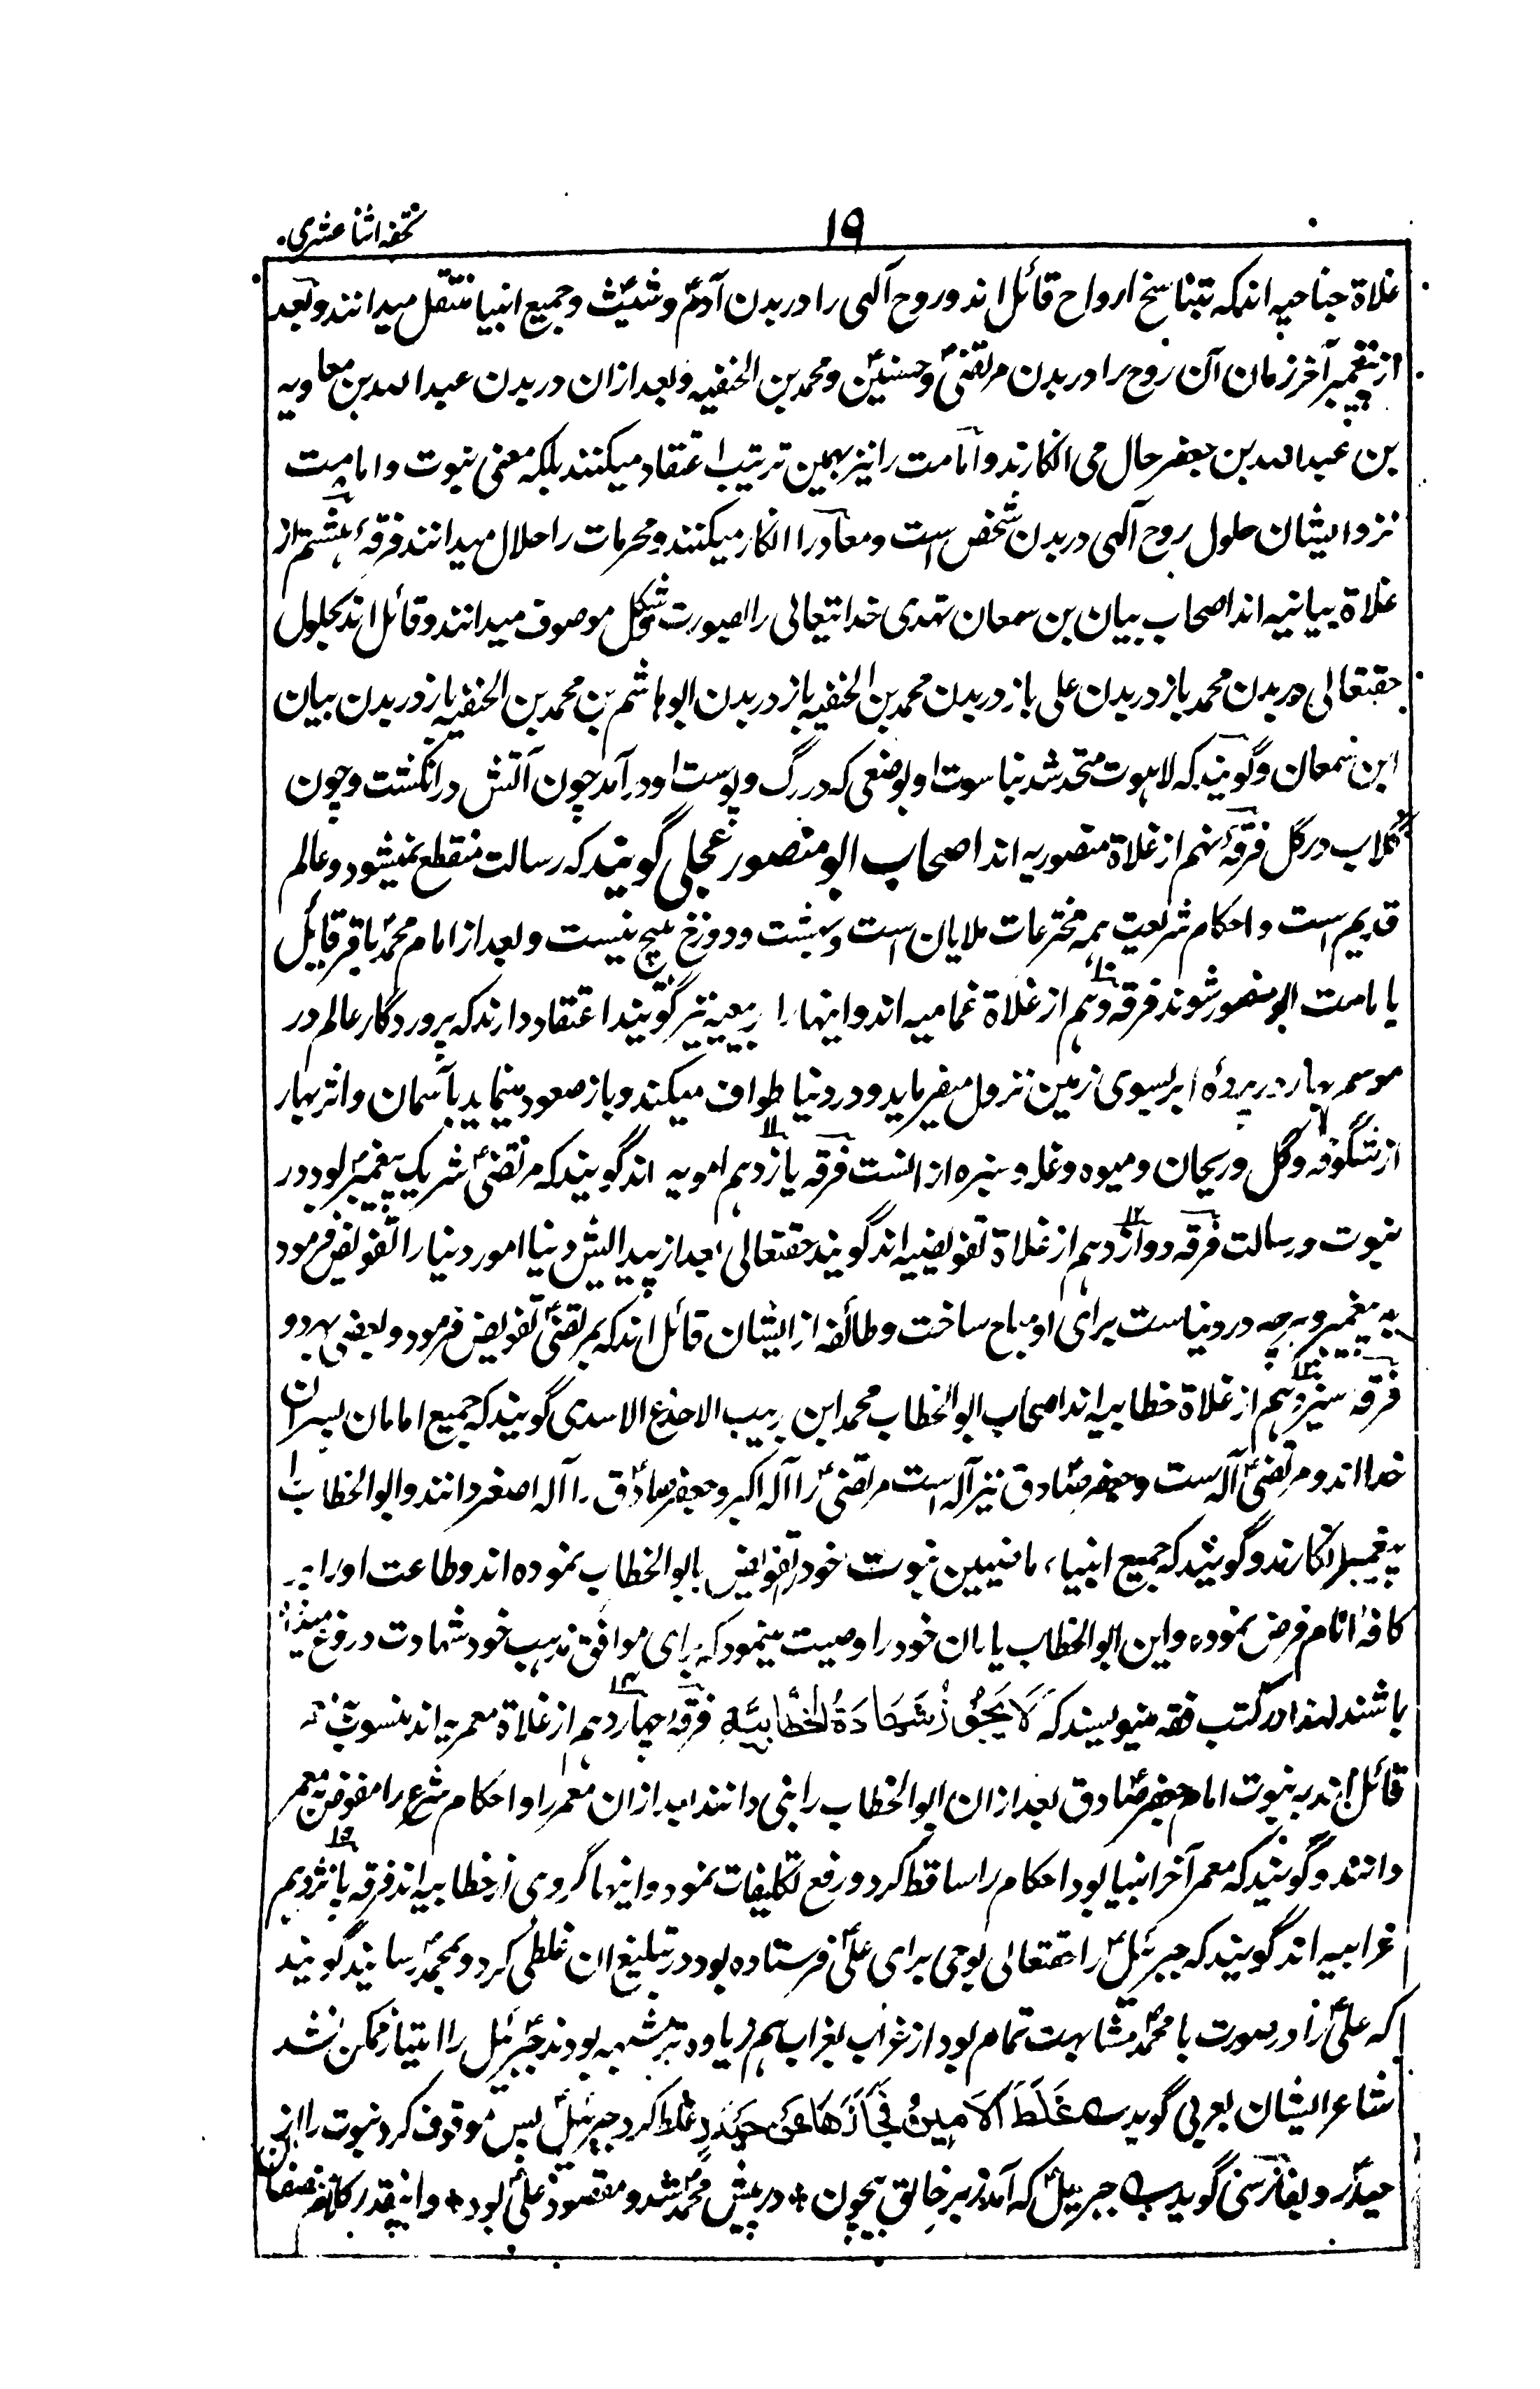 تحفه اثنا عشری.
۱۹
غلاة جناحیه اند که بتناسخ ارواح قائل اند و روح آلهی را در بدن آدمؑ و شیثؑ و جمیع انبیا منتقل میدانند و بعد
از پیغمبر آخر زمان آن روح را در بدن مرتضیؑ و حسنینؑ و محمد بن الحنفیه و بعد ازان در بدن عبد الله بن معاویه
بن عبد الله بن جعفر حال می انگارند و امامت را نیز بهمین ترتیب اعتقاد میکنند بلکه معنی نبوت و امامت
نزد ایشان حلول روح آلهی در بدن شخص است و معاد را انکار میکنند و محرمات را حلال میدانند فرقهٔ هشتم از
غلاة بیانیه اند اصحاب بیان بن سمعان نهدی خدا تیعالی را بصورت و شکل موصوف میدانند و قائل اند بحلول
حقتعالی در بدن محمد باز در بدن علی باز در بدن محمد بن الحنفیه باز در بدن ابو هاشم بن محمد بن الحنفیه باز در بدن بیان
ابن سمعان و گویند که لاهوت متحد شد بناسوت او بوضعی که در رگ و پوست او در آمد چون آتش در انگشت و چون
گلاب در گل فرقهٔ نهم از غلاة منصوریه اند اصحاب ابو منصور عجلی گویند که رسالت منقطع نمیشود و عالم
قدیم است و احکام شریعت همه مخترعات ملایان است و بهشت و دوزخ هیچ نیست و بعد از امام محمدؑ باقر قائل
بامامت ابو منصور شوند فرقه دهم از غلاة غمامیه اند و اینها را ربیعیه نیز گویند اعتقاد دارند که پروردگار عالم در
موسم بهار در پردهٔ ابر بسوی زمین نزول میفرماید و در دنیا طواف میکند و باز صعود مینماید بآسمان و اثر بهار
از شگوفه و گل و ریحان و میوه و غله و سبزه از انست فرقه یازدهم امویه اند گویند که مرتضیؑ شریک پیغمبرؐ بود در
نبوت و رسالت فرقه دوازدهم از غلاة تفویضیه اند گویند حقتعالی بعد از پیدایش دنیا امور دنیا را تفویض فرمود
به پیغمبر و هر چه در دنیاست برای او مباح ساخت و طائفه از ایشان قائل اند که بمرتضیؑ تفویض فرمود و بعضی بهر دو
فرقه سیزدهم از غلاة خطابیه اند اصحاب ابو الخطاب محمد ابن ربیب الاخدع الاسدی گویند که جمیع امامان پسران
خدا اند و مرتضیؑ آله ست و جعفر صادقؑ نیز آله است مرتضیؑ را آله اکبر و جعفر صادقؑ را آله اصغر دانند و ابو الخطاب را
پیغمبر انگارند و گویند که جمیع انبیاء ماضیین نبوت خود را تفویض بابو الخطاب نموده اند و طاعت او را بر
کافهٔ انام فرض نموده و این ابو الخطاب یاران خود را وصیت مینمود که برای موافق مذهب خود شهادت دروغ میداده
باشند لهذا در کتب فقه مینویسند که لَا یَجُوْزُ شَهَادَةُ الْخَطَّابِیَّةِ فرقهٔ چهاردهم از غلاة معمریه اند منسوب
قائل اند به نبوت امام جعفر صادقؑ بعد ازان ابو الخطاب را نبی دانند بعد ازان معمر را و احکام شرع را مفوض بمعمر
دانند و گویند که معمر آخر انبیا بود احکام را ساقط کرد و رفع تکلیفات نمود و اینها گروهی از خطابیه اند فرقه پانزدهم
غرابیه اند گویند که جبرئیلؑ را حقتعالی بوحی برای علیؑ فرستاده بود در تبلیغ ان غلطی کرد و بمحمدؐ رسانید گویند
که علیؑ را در صورت با محمدؐ مشابهت تمام بود از غراب بغراب هم زیاده تر مشبه بودند جبرئیلؑ را امتیاز ممکن نشد
شاعر ایشان بعربی گوید غَلَطَ الاَمِیْنُ فَجَازَهَا عَنْ حَیْدَرِ غلط کرد جبرئیلؑ پس موقوف کرد نبوت را از
حیدرؑ و بفارسی گوید جبرئیلؑ که آمد زبر خالق بیچون * در پیش محمدؐ شد و مقصود علیؑ بود * و اینقدر